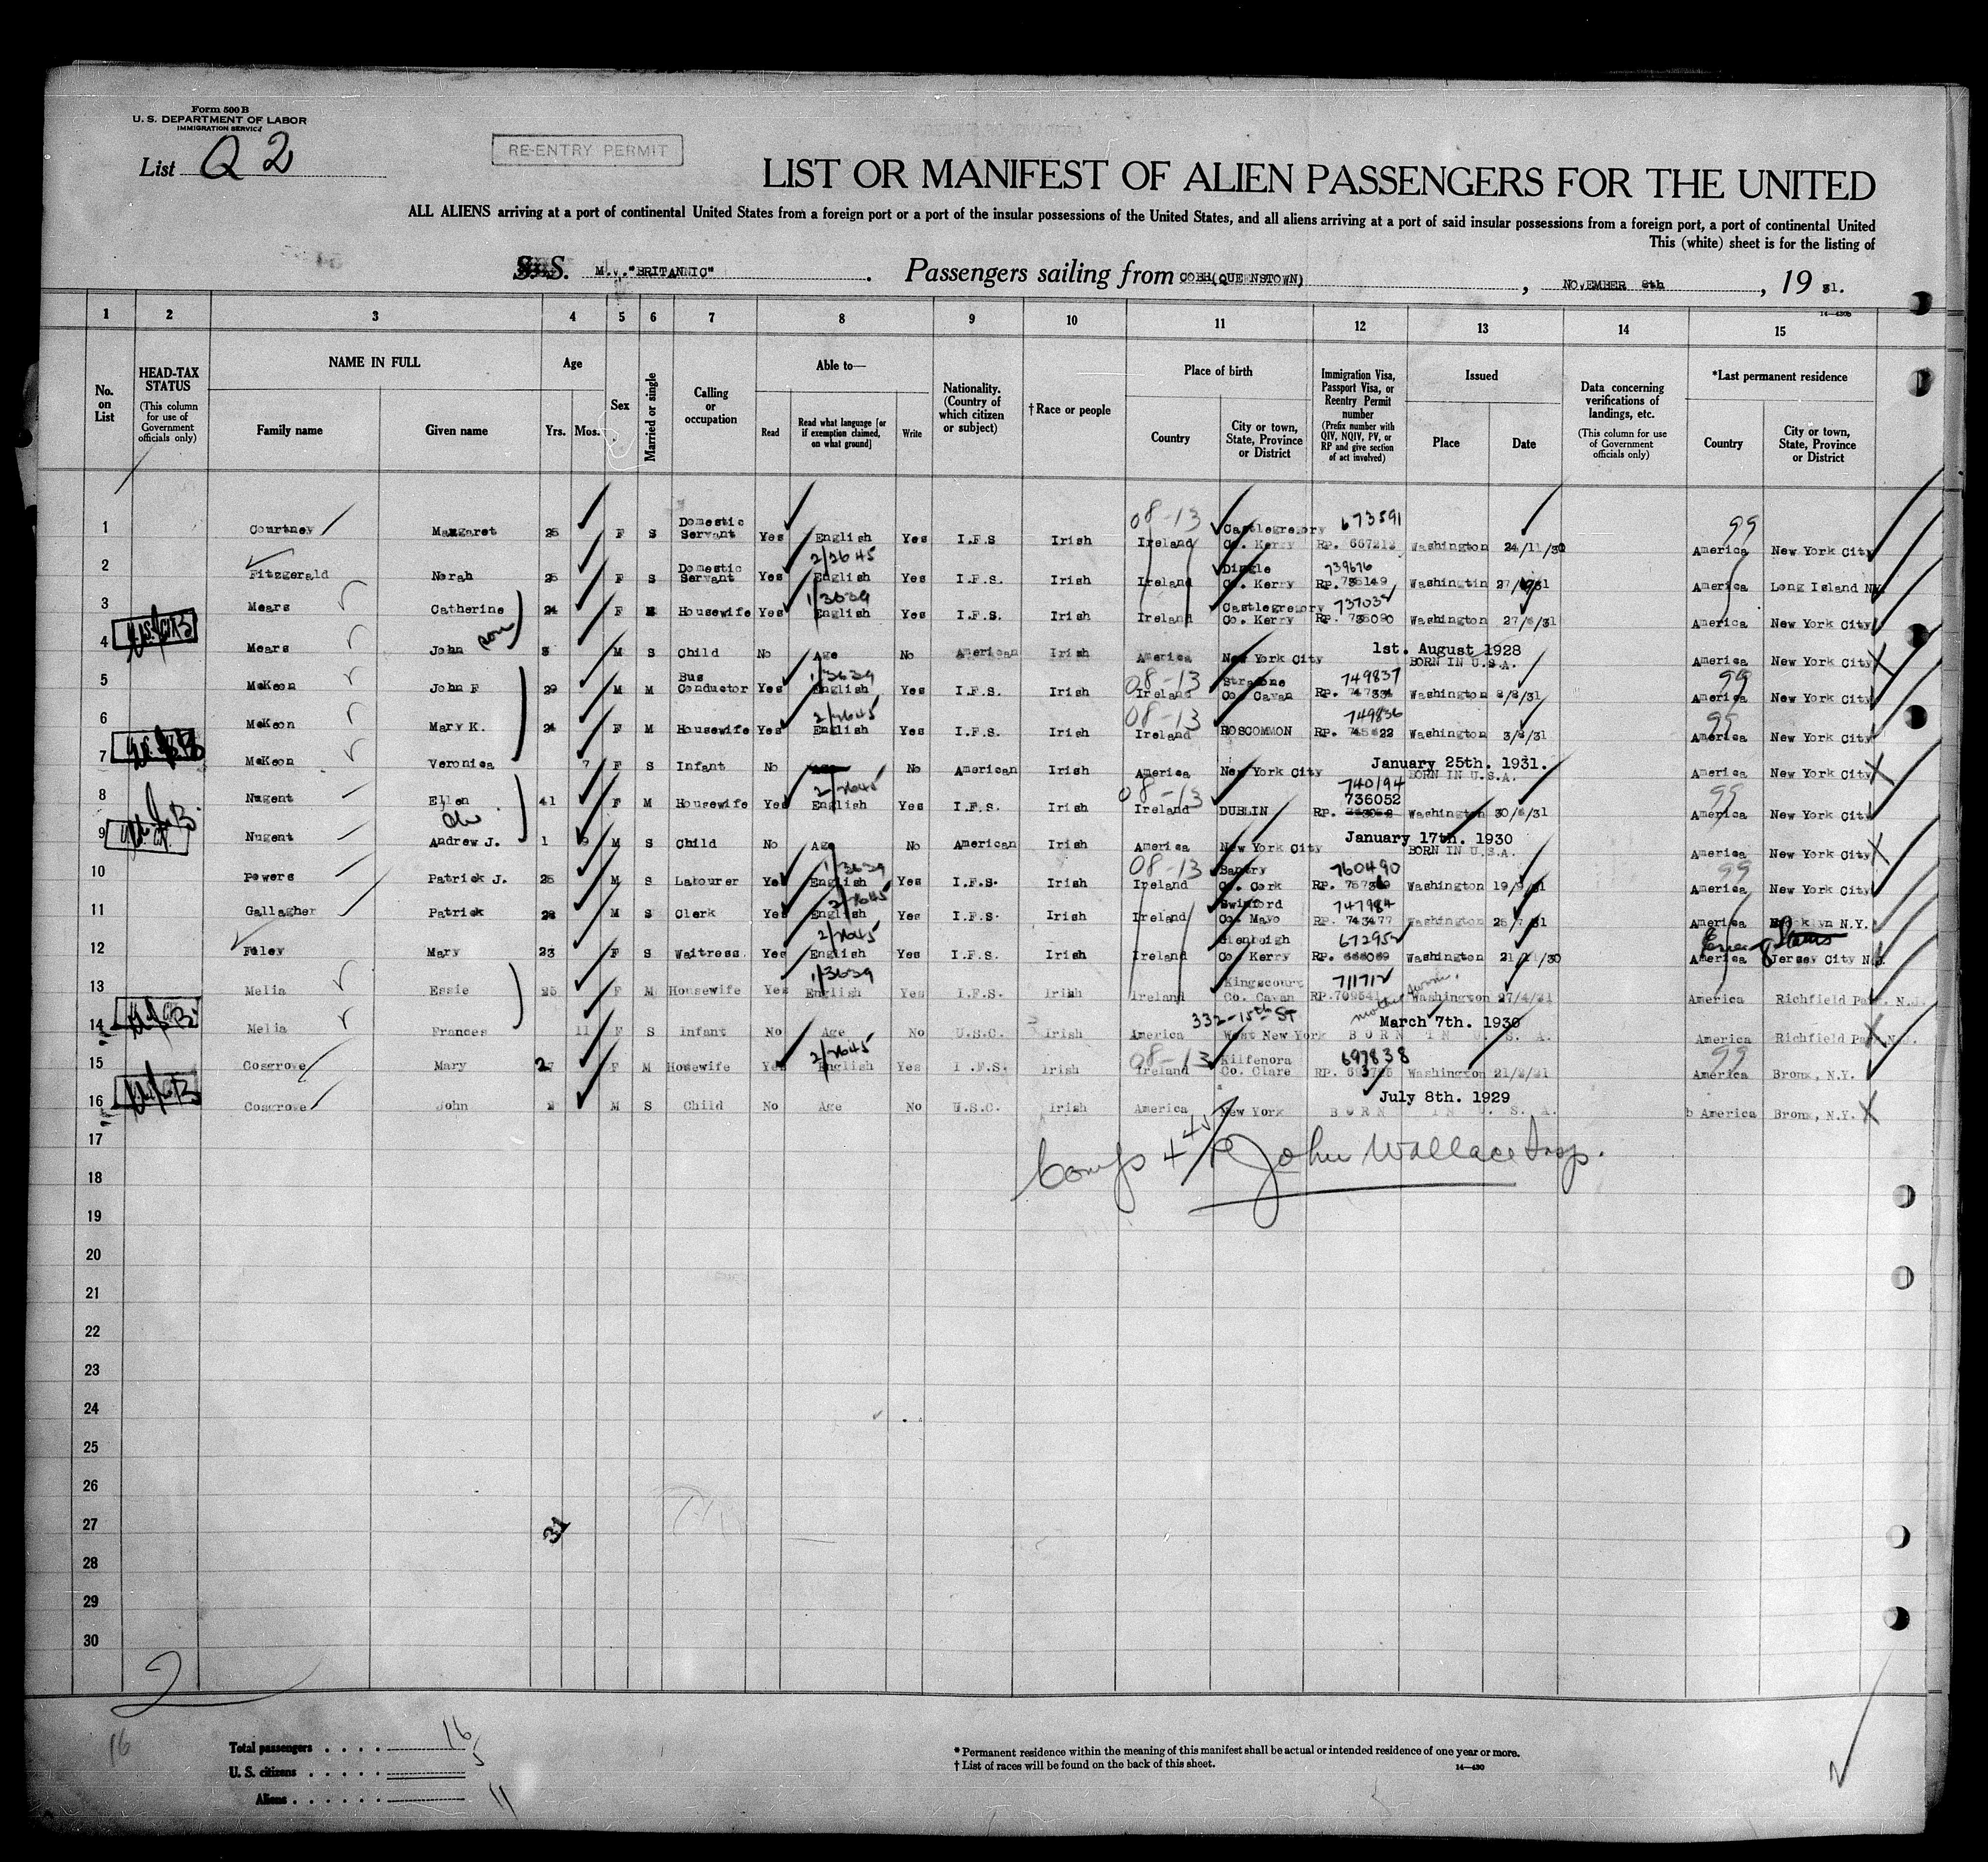 Form 500 B
U. S. DEPARTMENT OF LABOR
IMMIGRATION SERVICE
List Q 2
RE-ENTRY PERMIT
LIST OR MANIFEST OF ALIEN PASSENGERS FOR THE UNITED
ALL ALIENS arriving at a port of continental United States from a foreign port or a port of the insular possessions of the United States, and all aliens arriving at a port of said insular possessions from a foreign port, a port of continental United
This (white) sheet is for the listing of
S. S. M.V. "BRITANNIC" . Passengers sailing from COBH(QUEENSTOWN) , NOVEMBER 8th , 19 31.
14—430b
1 2 3 4 5 6 7 8 9 10 11 12 13 14 15
No. on List
HEAD-TAX STATUS
(This column for use of Government officials only)
NAME IN FULL
Family name
Given name
Age
Yrs. Mos.
Sex
Married or single
Calling or occupation
Able to—
Read
Read what language [or if exemption claimed, on what ground]
Write
Nationality. (Country of which citizen or subject)
† Race or people
Place of birth
Country
City or town, State, Province or District
Immigration Visa, Passport Visa, or Reentry Permit number
(Prefix number with QIV, NQIV, PV, or RP and give section of act involved)
Issued
Place
Date
Data concerning verifications of landings, etc.
(This column for use of Government officials only)
*Last permanent residence
Country
City or town, State, Province or District
1 Courtney Margaret 25 F S Domestic Servant Yes English Yes I.F.S Irish 08-13 Ireland Castlegregory Co. Kerry 673591 RP. 667212 Washington 24/11/30 99 America New York City
2 Fitzgerald Norah 25 F S Domestic Servant Yes 2/2645 English Yes I.F.S. Irish Ireland Dingle Co. Kerry 739676 RP. 735149 Washingtin 27/6/31 America Long Island NY.
3 Mears Catherine 24 F M Housewife Yes 1/3639 English Yes I.F.S. Irish Ireland Castlegregory Co. Kerry 737035 RP. 735090 Washington 27/6/31 America New York City
4 Mears John son 3 M S Child No Age No American Irish America New York City 1st. August 1928 BORN IN U.S.A. America New York City X
5 McKeon John F 29 M M Bus Conductor Yes 1/3639 English Yes I.F.S. Irish 08-13 Ireland Stradone Co. Cavan 749837 RP. Washington 8/8/31 99 America New York City
6 McKeon Mary K. 24 F M Housewife Yes 2/2645 English Yes I.F.S. Irish 08-13 Ireland ROSCOMMON 749836 RP. Washington 3/8/31 99 America New York City
7 McKeon Veronica 7 F S Infant No Age No American Irish America New York City January 25th. 1931. BORN IN U.S.A. America New York City X
8 Nugent Ellen 41 F M Housewife Yes 2/2645 English Yes I.F.S. Irish 08-13 Ireland DUBLIN 740194 736052 RP. Washington 30/6/31 99 America New York City
9 Nugent Andrew J. 1 9 M S Child No Age No American Irish America New York City January 17th. 1930 BORN IN U.S.A. America New York City X
10 Powers Patrick J. 25 M S Labourer Yes 1/3639 English Yes I.F.S. Irish 08-13 Ireland Bantry Co. Cork 760490 RP. Washington 19/9/31 99 America New York City
11 Gallagher Patrick 28 M S Clerk Yes 2/2645 English Yes I.F.S. Irish Ireland Swinford Co. Mayo 747984 RP. 743477 Washington 25/7/31 America Brooklyn N.Y.
12 Foley Mary 23 F S Waitress Yes 2/2645 English Yes I.F.S. Irish Ireland Glenbeigh Co. Kerry 672952 RP. Washington 21/11/30 America Jersey City N.J.
13 Melia Essie 25 F M Housewife Yes 1/3639 English Yes I.F.S. Irish Ireland Kingscourt Co. Cavan 711712 RP.709541 Washington 27/4/31 America Richfield Park. N.J.
14 Melia Frances 11 F S Infant No Age No U.S.C. Irish America 332-15th ST West New York March 7th. 1930 BORN IN U. S. A. America Richfield Park N.J.
15 Cosgrove Mary 27 F M Housewife Yes 2/2645 English Yes I.F.S. Irish 08-13 Ireland Kilfenora Co. Clare 697838 RP. Washington 21/2/31 99 America Bronx, N.Y.
16 Cosgrove John 2 M S Child No Age No U.S.C. Irish America New York July 8th. 1929 BORN IN U. S. A. America Bronx, N.Y. X
17
John Wallace Insp.
18
19
20
21
22
23
24
25
26
27 31
28
29
30
2
16
Total passengers . . . . 16
U. S. citizens . . . . . 5
Aliens . . . . . . 11
* Permanent residence within the meaning of this manifest shall be actual or intended residence of one year or more.
† List of races will be found on the back of this sheet.
14—430